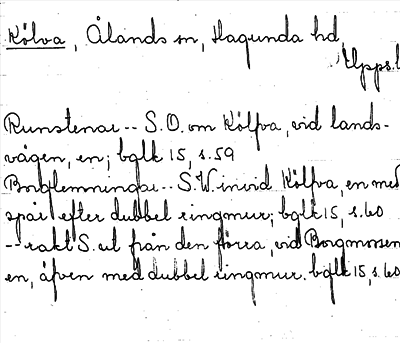 Kölva, Ålands sn, Hagunda hd,
Upps.l
Runstenar -- S.O. om Kölfva, vid lands-
vägen, en; bglk 15, s.59
Borglemningar -- S.W. invid Kölfva, en med
spår efter dubbel ringmur; bglk 15, s.60
-- rakt S. ut från den förra, vid Borgmossen
en, äfven med dubbel ringmur. bglk 15, s.60